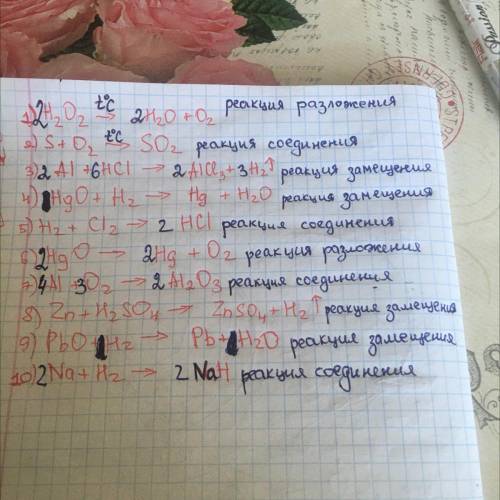 1) 2H₂O₂ t°C→ 2H₂O + O₂ реакция разложения
2) S + O₂ t°C→ SO₂ реакция соединения
3) 2Al + 6HCl → 2AlCl₃ + 3H₂↑ реакция замещения
4) HgO + H₂ → Hg + H₂O реакция замещения
5) H₂ + Cl₂ → 2 HCl реакция соединения
6) 2HgO → 2Hg + O₂ реакция разложения
7) 4Al + 3O₂ → 2Al₂O₃ реакция соединения
8) Zn + H₂SO₄ → ZnSO₄ + H₂↑ реакция замещения
9) PbO + 1H₂ → Pb + 1H₂O реакция замещения
10) 2Na + H₂ → 2 NaH реакция соединения